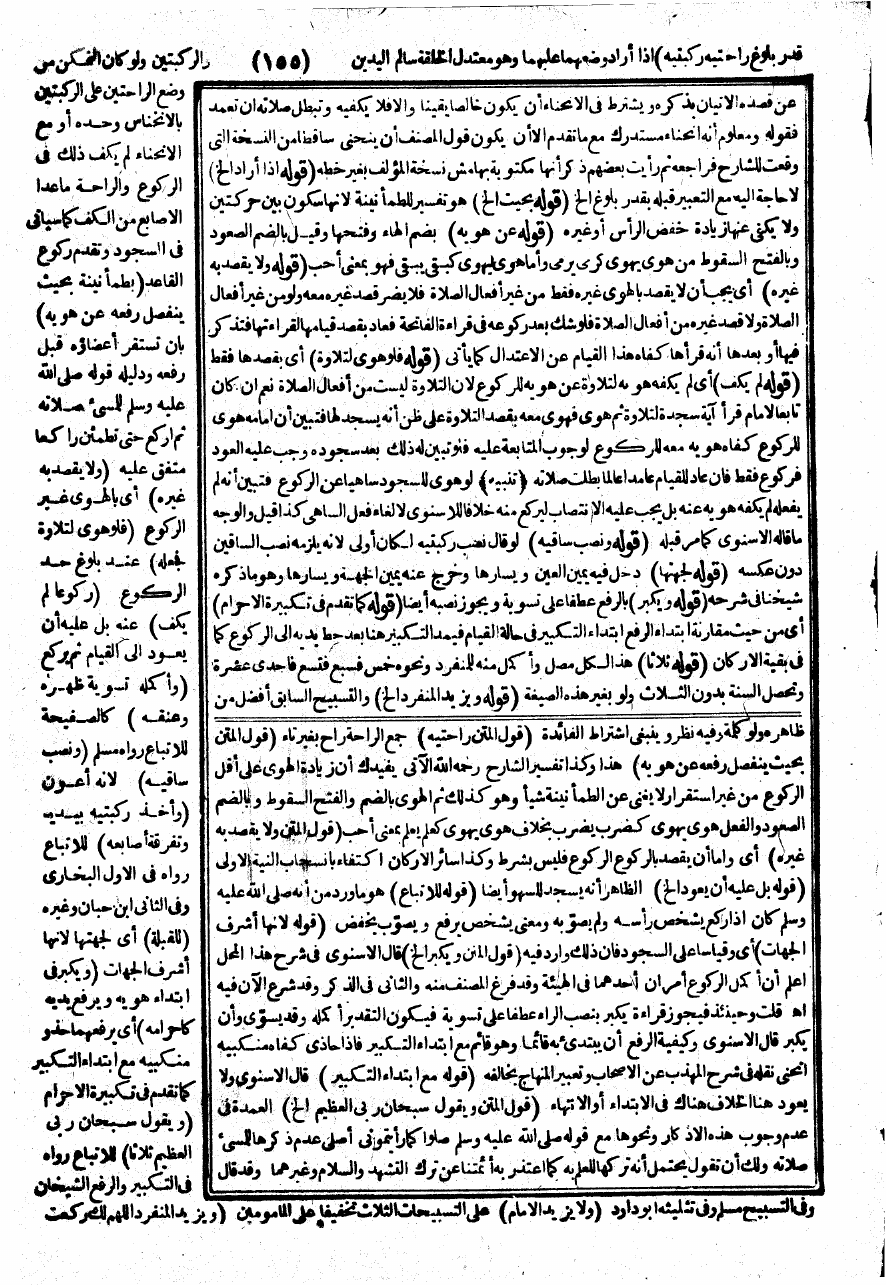 قدر بلوغ راحتيه ركبتيه) اذا أراد وضعهما عليهما وهو معتدل الخلقة سالم اليدين (١٥٥) والركبتين ولو كان التمكن من
وضع الراحتين على الركبتين
بالانخناس وحده أو مع
الانحناء لم يكف ذلك فى
الركوع والراحة ماعدا
الاصابع من الكف كما سيأتى
فى السجود وتقدم ركوع
القاعد (بطمأنينة بحيث
ينفصل رفعه عن هويه)
بان تستقر أعضاؤه قبل
رفعه ودليله قوله صلى الله
عليه وسلم للمسىء صلاته
ثم اركع حتى تطمئن راكعا
متفق عليه (ولا يقصد به
غيره) أى بالهوى غير
الركوع (فلو هوى لتلاوة
فجعله) عند بلوغ حد
الركوع (ركوعا لم
يكف) عنه بل عليه أن
يعود الى القيام ثم يركع
(وأكمله تسوية ظهره
وعنقه) كالصفيحة
للاتباع رواه مسلم (ونصب
ساقيه) لانه أعون
(وأخذ ركبتيه بيديه
وتفرقة أصابعه) للاتباع
رواه فى الاول البخارى
وفى الثانى ابن حبان وغيره
(للقبلة) أى لجهتها لانها
أشرف الجهات (ويكبر فى
ابتداء هويه ويرفع يديه
كاحرامه) أى يرفعهما حذو
منكبيه مع ابتداء التكبير
كما تقدم فى تكبيرة الاحرام
(ويقول سبحان ربى
العظيم ثلاثا) للاتباع رواه
فى التكبير والرفع الشيخان
وفى التسبيح مسلم وفى تثليثه أبو داود (ولا يزيد الامام) على التسبيحات الثلاث تخفيفا على المأمومين (ويزيد المنفرد اللهم لك ركعت
عن قصده الاتيان بذكره ويشترط فى الانحناء أن يكون خالصا يقينا والافلا يكفيه وتبطل صلاته ان تعمد
فقوله ومعلوم أنه انحناء مستدرك مع ما تقدم الا أن يكون قول المصنف أن ينحنى ساقطا من النسخة التى
وقعت للشارح فراجعه ثم رأيت بعضهم ذكر أنها مكتوبة بهامش نسخة المؤلف بغير خطه (قوله اذا أراد الخ)
لا حاجة اليه مع التعبير قبله بقدر بلوغ الخ (قوله بحيث الخ) هو تفسير للطمأنينة لانها سكون بين حركتين
ولا يكفى عنها زيادة خفض الرأس أو غيره (قوله عن هويه) بضم الهاء وفتحها وقيل بالضم الصعود
وبالفتح السقوط من هوى يهوى كرمى يرمى وأما هوى يهوى كبقى يبقى فهو بمعنى أحب (قوله ولا يقصد به
غيره) أى يجب أن لا يقصد بالهوى غيره فقط من غير أفعال الصلاة فلا يضر قصد غيره معه ولو من غير أفعال
الصلاة ولا قصد غيره من أفعال الصلاة فلو شك بعد ركوعه فى قراءة الفاتحة فعاد بقصد قيامها لقراءتها فتذكر
فيها أو بعدها أنه قرأها كفاه هذا القيام عن الاعتدال كما يأتى (قوله فلو هوى لتلاوة) أى بقصدها فقط
(قوله لم يكف) أى لم يكفه هويه لتلاوة عن هويه للركوع لان التلاوة ليست من أفعال الصلاة نعم ان كان
تابعا لامام قرأ آية سجدة لتلاوة ثم هوى فهوى معه بقصد التلاوة على ظن أنه يسجد لها فتبين أن امامه هوى
للركوع كفاه هويه معه للركوع لوجوب المتابعة عليه فلو تبين له ذلك بعد سجوده وجب عليه العود
فركوع فقط فان عاد للقيام عامدا عالما بطلت صلاته ﴿تنبيه﴾ لو هوى للسجود ساهيا عن الركوع فتبين أنه لم
يفعله لم يكفه هويه عنه بل يجب عليه الانتصاب ليركع منه خلافا للاسنوى لالغاء فعل الساهى كذا قيل والوجه
ما قاله الاسنوى كما مر قبله (قوله ونصب ساقيه) لو قال نصب ركبتيه لكان أولى لانه يلزمه نصب الساقين
دون عكسه (قوله لجهتها) دخل فيه يمين العين ويسارها وخرج عنه يمين الجهة ويسارها وهو ما ذكره
شيخنا فى شرحه (قوله ويكبر) بالرفع عطفا على تسوية ويجوز نصبه أيضا (قوله كما تقدم فى تكبيرة الاحرام)
أى من حيث مقارنة ابتداء الرفع ابتداء التكبير فى حالة القيام فيمد التكبير هنا بعد حط يديه الى الركوع كما
فى بقية الاركان (قوله ثلاثا) هذا لكل مصل وأكمل منه للمنفرد ونحوه خمس فسبع فتسع فاحدى عشرة
وتحصل السنة بدون الثلاث ولو بغير هذه الصيغة (قوله ويزيد المنفرد الخ) والتسبيح السابق أفضل من
ظاهره ولو كلمة وفيه نظر وينبغى اشتراط الفائدة (قول المتن راحتيه) جمع الراحة راح بغير تاء (قول المتن
بحيث ينفصل رفعه عن هويه) هذا وكذا تفسير الشارح رحمه الله الآتى يفيدك أن زيادة الهوى على أقل
الركوع من غير استقرار لا يغنى عن الطمأنينة شيأ وهو كذلك ثم الهوى بالضم والفتح السقوط وبالضم
الصعود والفعل هوى يهوى كضرب يضرب بخلاف هوى يهوى كعلم يعلم بمعنى أحب (قول المتن ولا يقصد به
غيره) أى واما أن يقصد بالركوع الركوع فليس بشرط وكذا سائر الاركان اكتفاء بانسحاب النية الاولى
(قوله بل عليه أن يعود الخ) الظاهر أنه يسجد للسهو أيضا (قوله للاتباع) هو ما ورد من أنه صلى الله عليه
وسلم كان اذا ركع لم يشخص رأسه ولم يصوّبه ومعنى يشخص يرفع ويصوّب يخفض (قوله لانها أشرف
الجهات) أى وقياسا على السجود فان ذلك وارد فيه (قول المتن ويكبر الخ) قال الاسنوى فى شرح هذا المحل
اعلم أن أكمل الركوع أمران أحدهما فى الهيئة وقد فرغ المصنف منه والثانى فى الذكر وقد شرع الآن فيه
اه قلت وحينئذ فيجوز قراءة يكبر بنصب الراء عطفا على تسوية فيكون التقدير أكمله وقد يسوّى وأن
يكبر قال الاسنوى وكيفية الرفع أن يبتدئ به قائما وهو قائم مع ابتداء التكبير فاذا حاذى كفاه منكبيه
انحنى نقله فى شرح المهذب عن الاصحاب وتعبير المنهاج يخالفه (قوله مع ابتداء التكبير) قال الاسنوى ولا
يعود هنا الخلاف هناك فى الابتداء أو الانتهاء (قول المتن ويقول سبحان ربى العظيم الخ) العمدة فى
عدم وجوب هذه الاذكار ونحوها مع قوله صلى الله عليه وسلم صلوا كما رأيتمونى أصلى عدم ذكرها للمسىء
صلاته ولك أن تقول يحتمل أنه تركها للعلم به كما اعتذر به أئمتنا عن ترك التشهد والسلام وغيرهما وقد قال